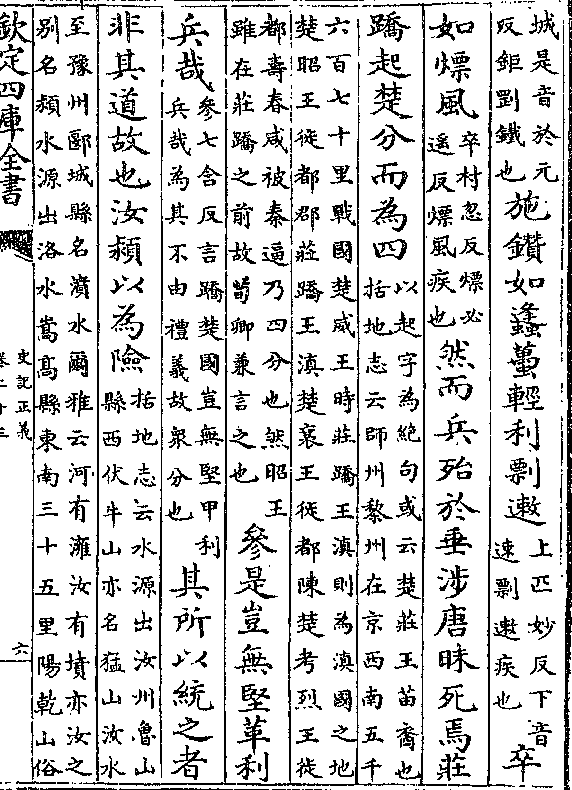 城是音於元
反鉅剛鐵也
施鑚如蠭蠆輕利剽遬
上匹妙反下音
速剽遬疾也
卒
如熛風
卒村忽反熛必
遥反熛風疾也
然而兵殆於垂涉唐昧死焉莊
蹻起楚分而為四
以起字為絶句或云楚莊王苗裔也
括地志云師州黎州在京西南五千
六百七十里戰國楚威王時莊蹻王滇則為滇國之地
楚昭王徙都鄀莊蹻王滇楚襄王徙都陳楚考烈王徙
都壽春咸被秦逼乃四分也然昭王
雖在莊蹻之前故荀卿兼言之也
參是豈無堅革利
兵哉
參七含反言蹻楚國豈無堅甲利
兵哉為其不由禮義故衆分也
其所以統之者
非其道故也汝潁以為險
括地志云水源出汝州魯山
縣西伏牛山亦名猛山汝水
至豫州郾城縣名濆水爾雅云河有灉汝有墳亦汝之
别名潁水源出洛水嵩高縣東南三十五里陽乾山俗
欽定四庫全書
史記正義
卷二十三
六